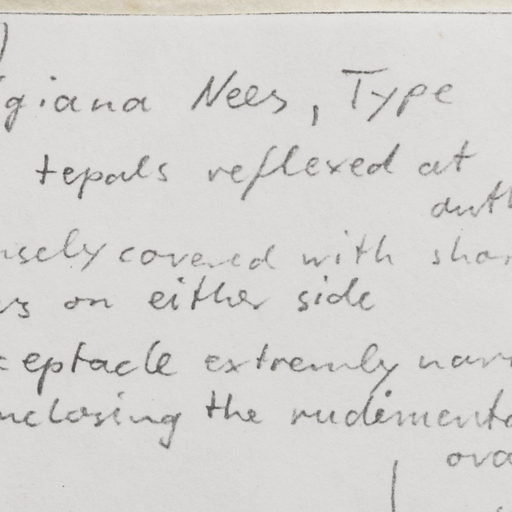 giana Nees, Type
tepals reflexed at
anth
nsely covered with shor
rs on either side
ceptacle extremly narr
nclosing the rudimenta
ova